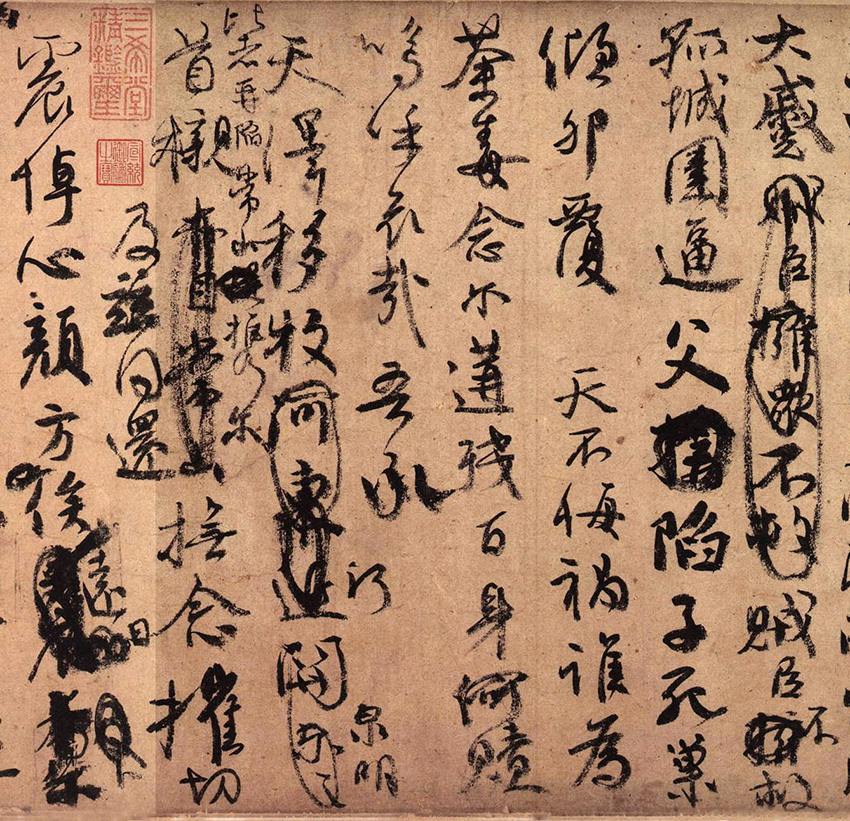 大蹙賊臣擁衆不救賊臣不救
孤城圍逼父陷子死巢
傾卵覆　天不悔禍誰為
荼毒念爾遘殘百身何贖
嗚呼哀哉吾承
泉明
天澤移牧河東近
比者再陷常山攜爾
首櫬亦自常山撫念摧切
及茲同還
震悼心顏方俟
遠日
三希堂精鑑璽